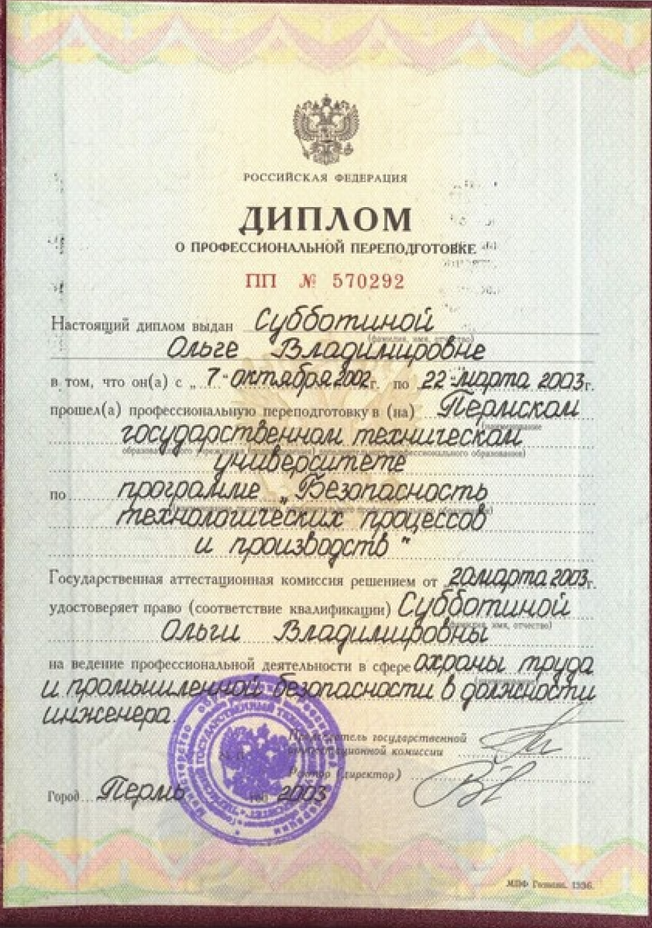 РОССИЙСКАЯ ФЕДЕРАЦИЯ
ДИПЛОМ
О ПРОФЕССИОНАЛЬНОЙ ПЕРЕПОДГОТОВКЕ
ПП № 570292
Настоящий диплом выдан Субботиной
(фамилия, имя, отчество)
Ольге Владимировне
в том, что он(а) с „ 7 " октября 2002 г. по 22 " марта 2003 г.
прошел(а) профессиональную переподготовку в (на) Пермском
(наименование
государственном техническом
образовательного учреждения профессионального образования)
университете
по программе „Безопасность
технологических процессов
и производств"
Государственная аттестационная комиссия решением от 20 марта 2003 г.
удостоверяет право (соответствие квалификации) Субботиной
(фамилия, имя, отчество)
Ольги Владимировны
на ведение профессиональной деятельности в сфере охраны труда
и промышленной безопасности в должности
инженера.
Председатель государственной
аттестационной комиссии
Ректор (директор)
Город Пермь год 2003
МПФ Гознака. 1996.